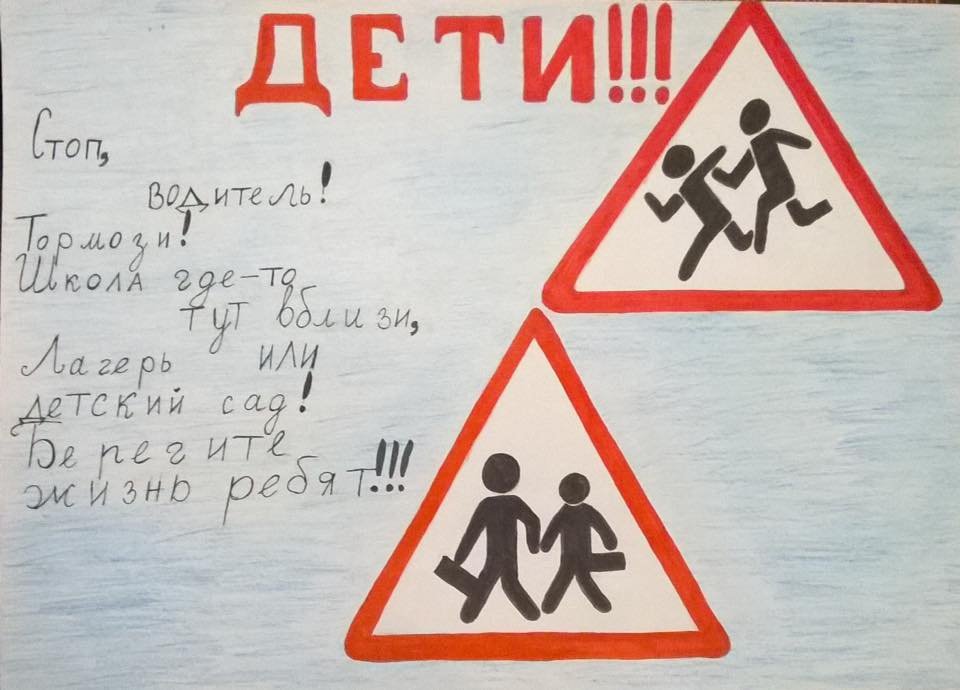 ДЕТИ!!!
Стоп,
водитель!
Тормози!
Школа где-то
тут вблизи,
Лагерь или
детский сад!
Берегите
жизнь ребят!!!